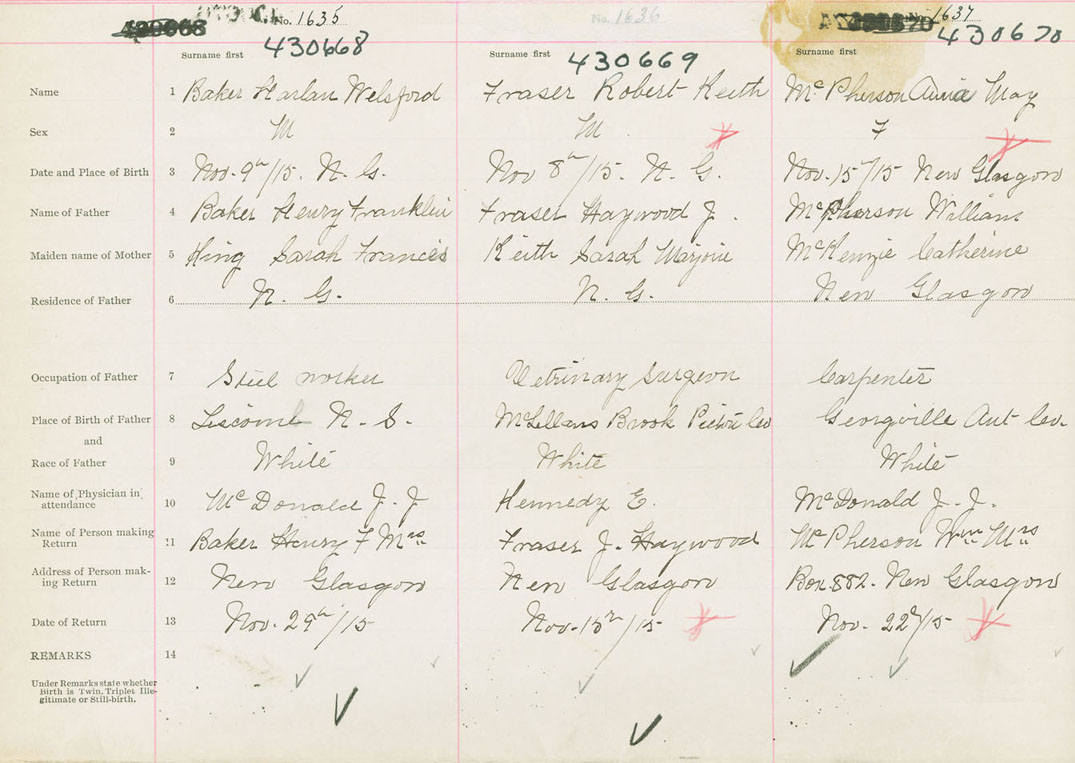 No. 1635 No. 1636 No. 1637
430668 430669 430670
Surname first Surname first Surname first
Name 1 Baker Harlan Welsford Fraser Robert Keith McPherson Annie May
Sex 2 M M F
Date and Place of Birth 3 Nov. 9th/15. N. G. Nov 8th/15. N. G. Nov. 15/15 New Glasgow
Name of Father 4 Baker Henry Franklin Fraser Haywood J. McPherson William
Maiden name of Mother 5 King Sarah Francis Keith Sarah Marjorie McKenzie Catherine
Residence of Father 6 N. G. N. G. New Glasgow
Occupation of Father 7 Steel worker Vetrinary Surgeon Carpenter
Place of Birth of Father 8 Liscomb N. S. McLellans Brook Pictou Co Georgville Ant Co.
and
Race of Father 9 White White White
Name of Physician in 10 McDonald J. J Kennedy E. McDonald J. J.
attendance
Name of Person making 11 Baker Henry F Mrs Fraser J. Haywood McPherson Wm Mrs
Return
Address of Person mak- 12 New Glasgow New Glasgow Box 882. New Glasgow
ing Return
Date of Return 13 Nov. 29th/15 Nov. /15 Nov. 22/15
REMARKS 14
Under Remarks state whether
Birth is Twin, Triplet Ille-
gitimate or Still-birth.